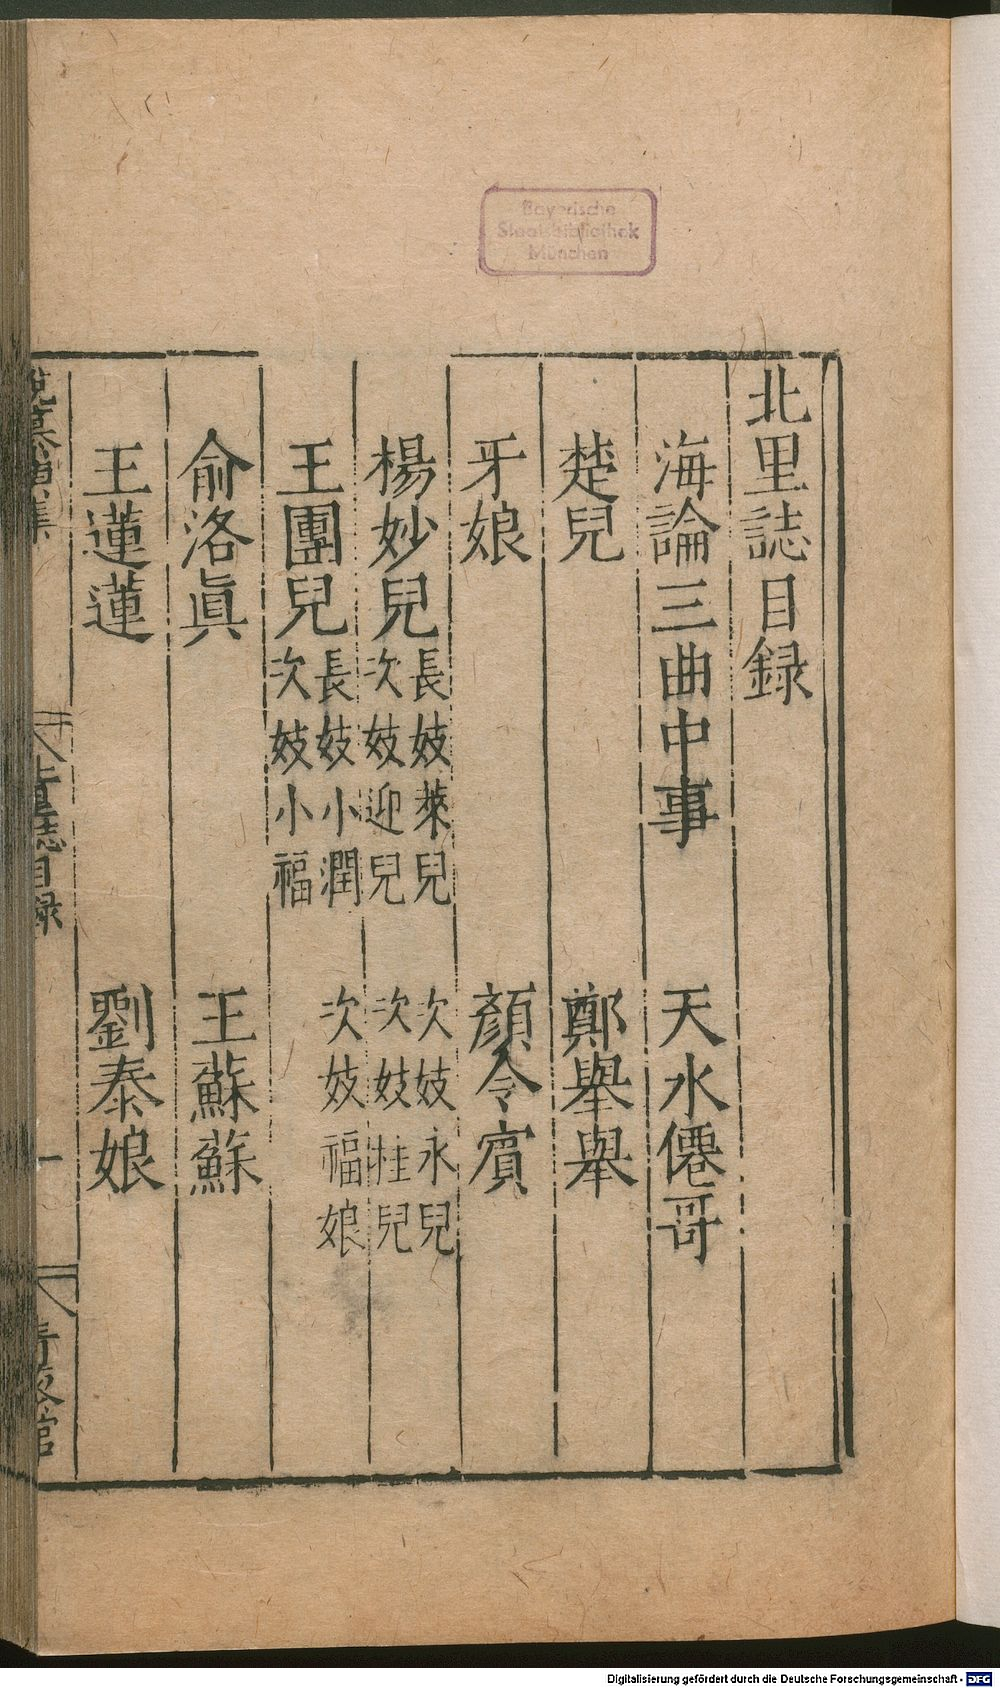 Bayerische
Staatsbibliothek
München
北里誌目録
海論三曲中事　天水僊哥
楚兒　鄭舉舉
牙娘　顏令賓
楊妙兒 長妓萊兒 次妓迎兒 次妓永兒 次妓桂兒
王團兒 長妓小潤 次妓小福 次妓福娘
俞洛眞　王蘇蘇
王蓮蓮　劉泰娘
北里誌目録
一
Digitalisierung gefördert durch die Deutsche Forschungsgemeinschaft - DFG